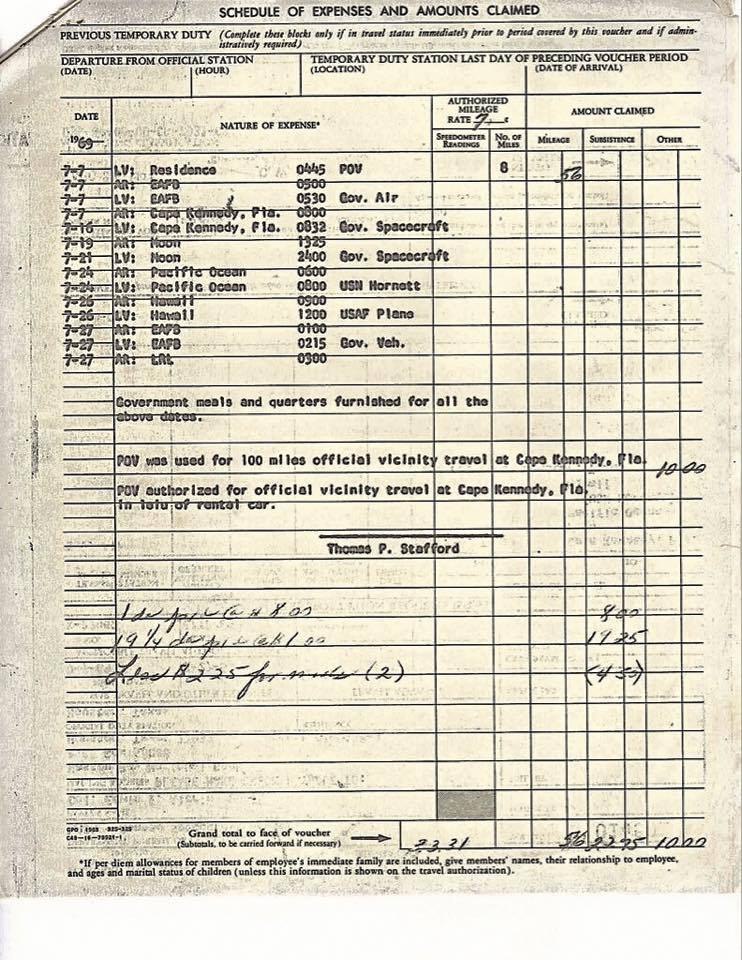 SCHEDULE OF EXPENSES AND AMOUNTS CLAIMED
PREVIOUS TEMPORARY DUTY (Complete these blocks only if in travel status immediately prior to period covered by this voucher and if admin-
istratively required)
DEPARTURE FROM OFFICIAL STATION
(DATE) (HOUR)
TEMPORARY DUTY STATION LAST DAY OF PRECEDING VOUCHER PERIOD
(LOCATION) (DATE OF ARRIVAL)
DATE
1969
NATURE OF EXPENSE*
AUTHORIZED
MILEAGE
RATE 7 ¢
SPEEDOMETER
READINGS
NO. OF
MILES
AMOUNT CLAIMED
MILEAGE SUBSISTENCE OTHER
7-7 LV: Residence 0445 POV 8 56
7-7 AR: EAFB 0500
7-7 LV: EAFB 0530 Gov. Air
7-7 AR: Cape Kennedy, Fla. 0800
7-16 LV: Cape Kennedy, Fla. 0832 Gov. Spacecraft
7-19 AR: Moon 1325
7-21 LV: Moon 2400 Gov. Spacecraft
7-24 AR: Pacific Ocean 0600
7-24 LV: Pacific Ocean 0800 USN Hornett
7-26 AR: Hawaii 0900
7-26 LV: Hawaii 1200 USAF Plane
7-27 AR: EAFB 0100
7-27 LV: EAFB 0215 Gov. Veh.
7-27 AR: LRL 0300
Government meals and quarters furnished for all the
above dates.
POV was used for 100 miles official vicinity travel at Cape Kennedy, Fla. 10.00
POV authorized for official vicinity travel at Cape Kennedy, Fla.
in leiu of rental car.
Thomas P. Stafford
1 8.00 8.00
19 1/4 1.00 19.25
Less $2.25 for meals (2) (4.50)
GPO : 1968
Grand total to face of voucher
(Subtotals, to be carried forward if necessary)
33.31 56 22.75 10.00
*If per diem allowances for members of employee's immediate family are included, give members' names, their relationship to employee,
and ages and marital status of children (unless this information is shown on the travel authorization).